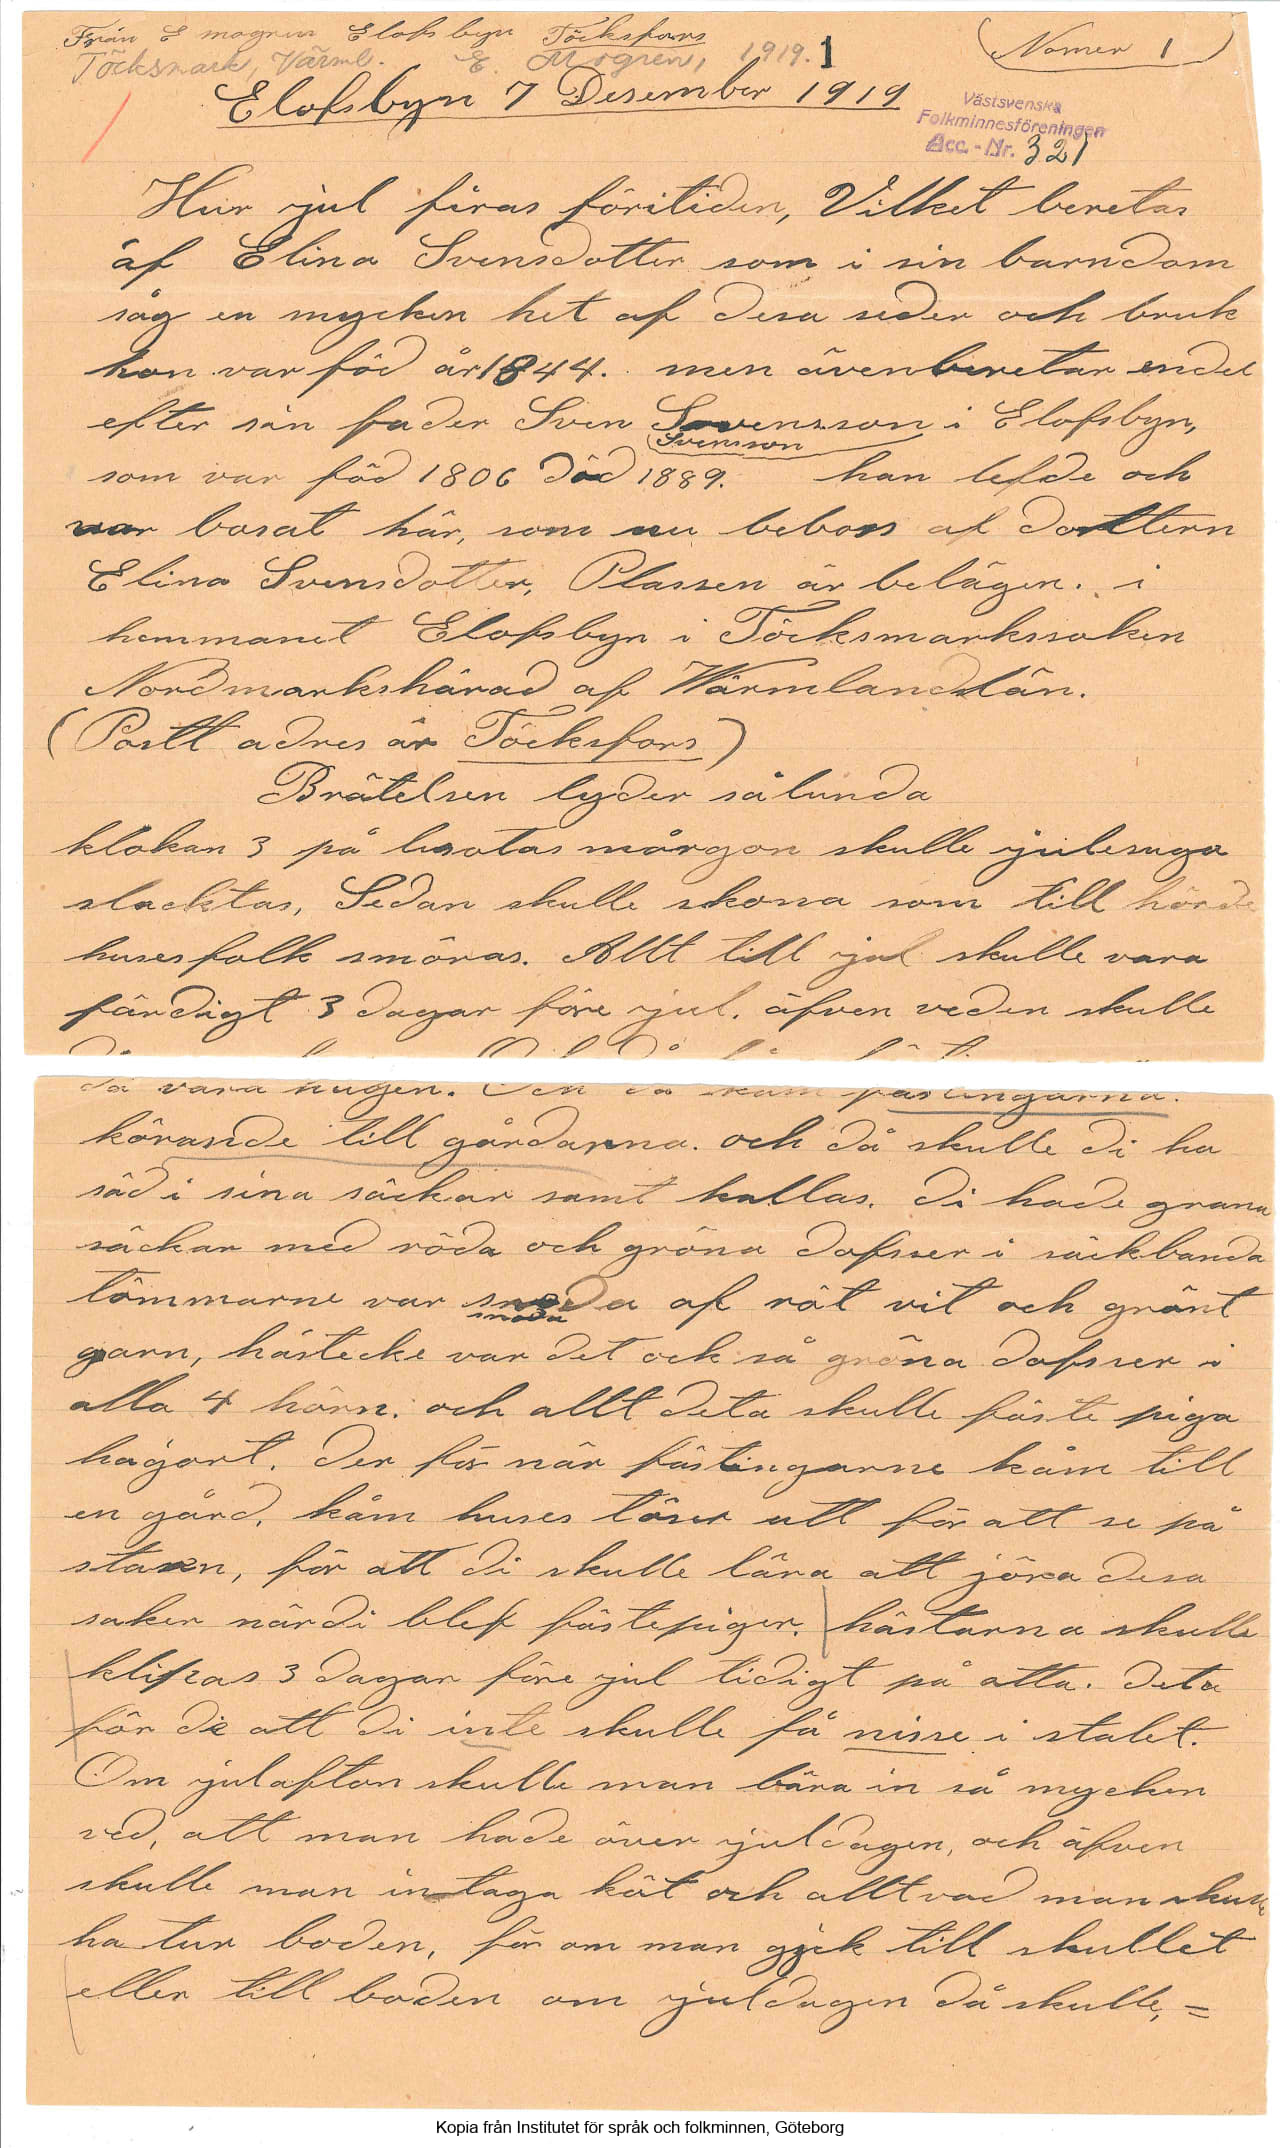 Från E mogren Elofsbyn Töcksfors
(Nomer 1)
Töcksmark, Värml. E. Mogren, 1919. 1
Elofsbyn 7 Desember 1919
Västsvenska
Folkminnesföreningen
Acc.-Nr. 321
Hur jul firas föritiden, Vilket beretas
af Elina Svensdotter som i sin barndom
såg en mycken het af desa seder och bruk
hon var föd år 1844. men även beretar endel
efter sin fader Sven Svensson i Elofsbyn,
Svensson
som var föd 1806 död 1889. han lefde och
var bosat här, som nu bebos af dottern
Elina Svensdotter, Plassen är belägen. i
hemmanet Elofsbyn i Töcksmarkssoken
Nordmarkshärad af Wärmlandslän.
(Postt adres är Töcksfors)
Brätelsen lyder sålunda
klokan 3 på lusotas mårgon skulle julesuga
slacktas, Sedan skulle skona som till hörde
husesfolk smöras. Allt till jul skulle vara
färdigt 3 dagar före jul. äfven veden skulle
då vara hugen. Och då kom fästingarna.
körande till gårdarna. och då skulle di ha
säd i sina säckar samt kallas. di hade grana
säckar med röda och gröna dofsser i säckbanda
tömmarne var snoda af röt vit och grönt
snoda
garn, hästecke var det ock så gröna dofsser i
alla 4 hörn. och allt deta skulle fäste piga
hagort. der för när fästingarne kåm till
en gård, kåm huses töser utt för att se på
stasen, för att di skulle lära att jöra desa
saker när di blef fästepiger. hästarna skulle
klippas 3 dagar före jul tidigt på otta. deta
för di att di inte skulle få nisse i stalet.
Om julafton skulle man bära in så mycken
ved, att man hade över juldagen, och äfven
skulle man intaga köt och allt vad man skulle
ha tur boden, för om man gjick till skullet
eller till boden om juldagen då skulle, =
Kopia från Institutet för språk och folkminnen, Göteborg